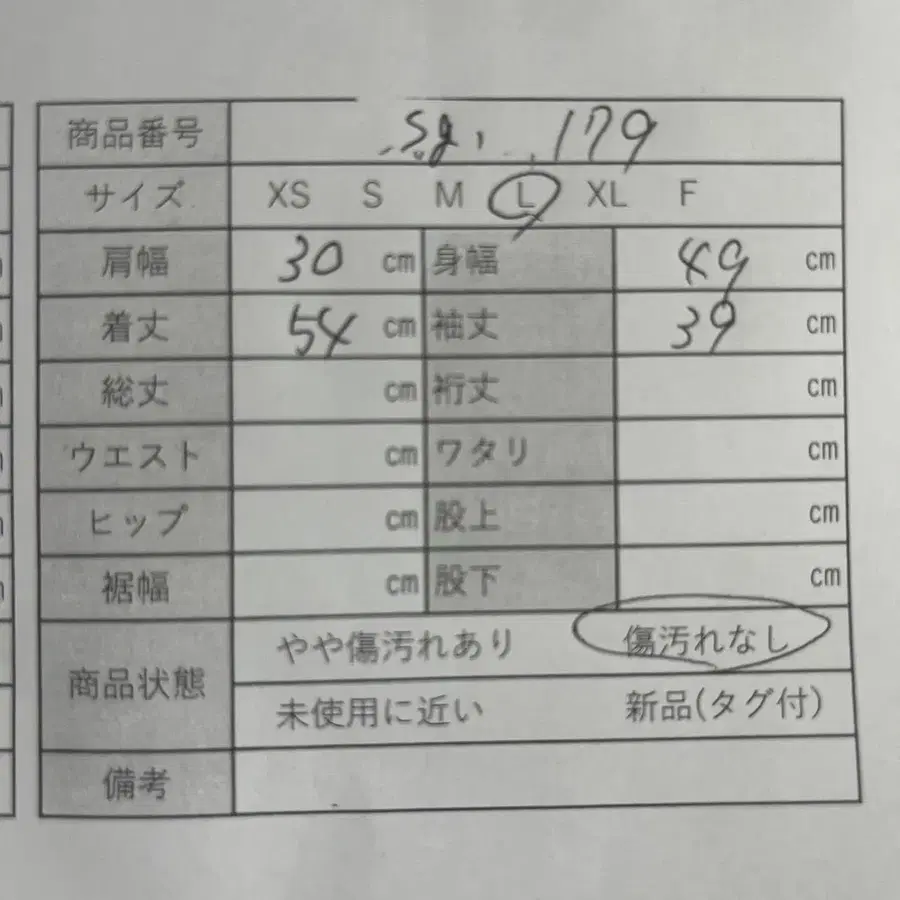 商品番号 Sg. 179
サイズ XS S M L XL F
肩幅 30 cm 身幅 49 cm
着丈 54 cm 袖丈 39 cm
総丈 cm 裄丈 cm
ウエスト cm ワタリ cm
ヒップ cm 股上 cm
裾幅 cm 股下 cm
商品状態 やや傷汚れあり 傷汚れなし
未使用に近い 新品(タグ付)
備考